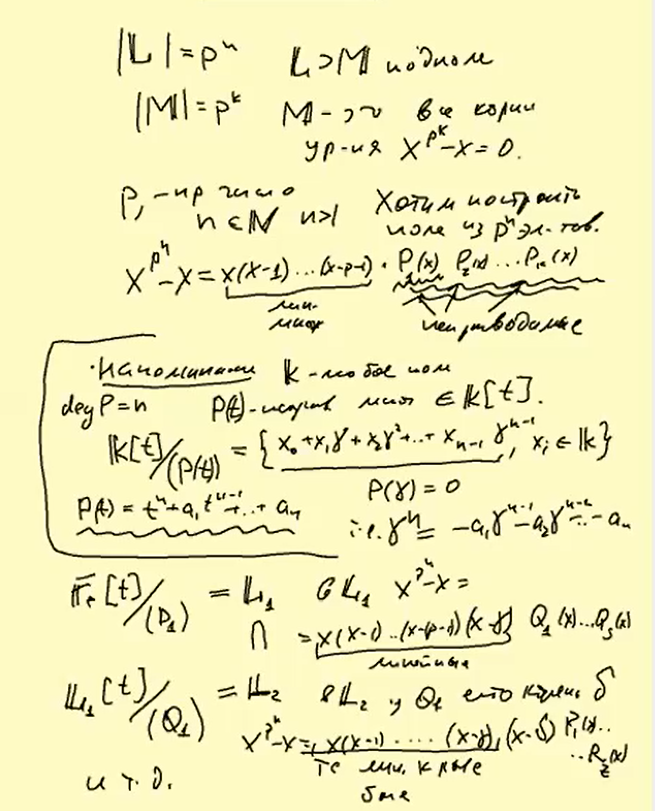 |𝕃| = pⁿ   𝕃 ⊃ 𝕄 подполе
|𝕄| = p^k   𝕄 - это все корни
ур-ия x^{p^k} - x = 0.
p, - пр число   Хотим построить
n ∈ ℕ n>1   поле из pⁿ эл-тов.
x^{pⁿ} - x = x(x-1)...(x-p-1) · P₁(x) P₂(x) ... P_k(x)
лин. множ   неприводимые
· Напоминание   𝕜 - любое поле
deg P = n   P(t) - неприв мног ∈ 𝕜[t].
𝕜[t]/(P(t)) = { x₀ + x₁γ + x₂γ² + ... + x_{n-1} γ^{n-1}, x_i ∈ 𝕜 }
P(t) = tⁿ + a₁t^{n-1} + ... + a_n   P(γ) = 0
т.е. γⁿ = -a₁γ^{n-1} - a₂γ^{n-2} - ... - a_n
𝔽_p[t]/(P₁) = 𝕃₁   в 𝕃₁ x^{pⁿ} - x =
∩   = x(x-1)...(x-p-1)(x-γ) Q₁(x)...Q_s(x)
линейные
𝕃₁[t]/(Q₁) = 𝕃₂   в 𝕃₂ у Q₁ есть корень δ
x^{pⁿ} - x = x(x-1) .... (x-γ), (x-δ) R₁(x)..
..R_z(x)
те лин. к рые
были
и т. д.